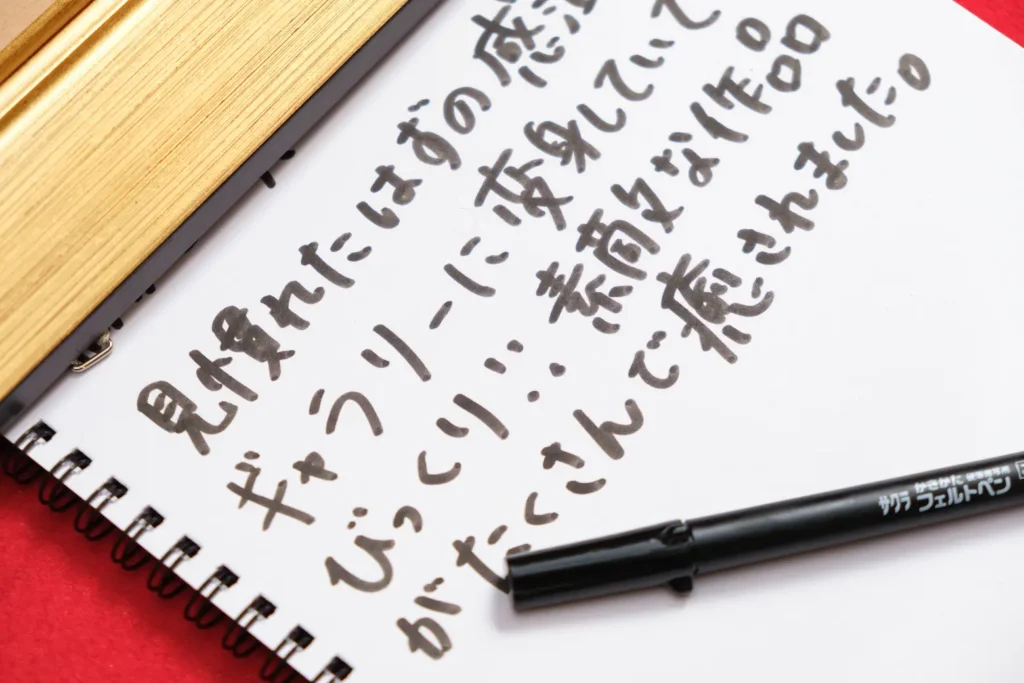 見慣れたはずの感
ギャラリーに変身していて
びっくり!! 素敵な作品
がたくさんで癒されました。
サクラ かきかた
フェルトペン